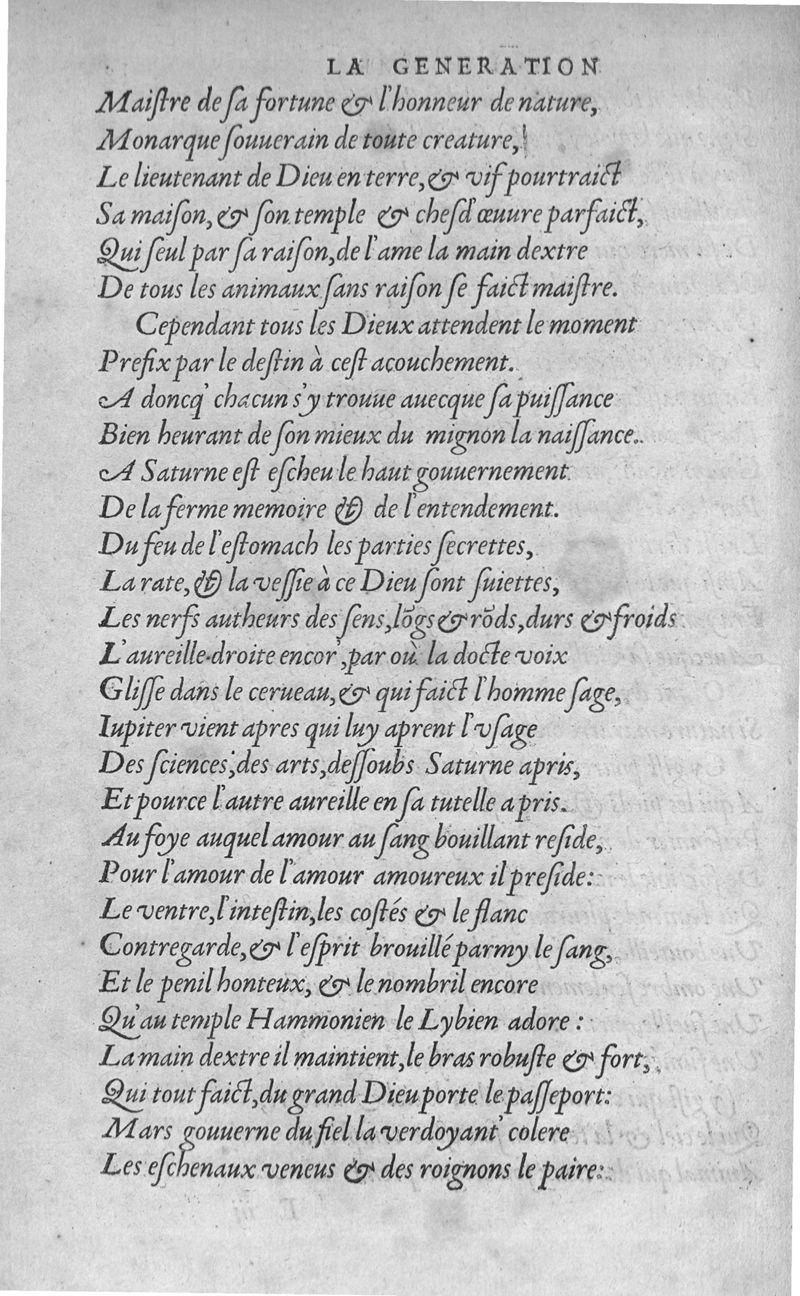 LA GENERATION
Maiſtre de ſa fortune & l'honneur de nature,
Monarque ſouuerain de toute creature,
Le lieutenant de Dieu en terre, & vif pourtraict
Sa maiſon, & ſon temple & chefd'œuure parfaict,
Qui ſeul par ſa raiſon, de l'ame la main dextre
De tous les animaux ſans raiſon ſe faict maiſtre.
Cependant tous les Dieux attendent le moment
Prefix par le deſtin à ceſt acouchement.
A doncq' chacun s'y trouue auecque ſa puiſſance
Bien heurant de ſon mieux du mignon la naiſſance.
A Saturne eſt eſcheu le haut gouuernement
De la ferme memoire & de l'entendement.
Du feu de l'eſtomach les parties ſecrettes,
La rate, & la veſſie à ce Dieu ſont ſuiettes,
Les nerfs autheurs des ſens, lõgs & rõds, durs & froids
L'aureille droite encor', par où la docte voix
Gliſſe dans le cerueau, & qui faict l'homme ſage,
Iupiter vient apres qui luy aprent l'vſage
Des ſciences, des arts, deſſoubs Saturne apris,
Et pource l'autre aureille en ſa tutelle a pris.
Au foye auquel amour au ſang bouillant reſide,
Pour l'amour de l'amour amoureux il preſide:
Le ventre, l'inteſtin, les coſtés & le flanc
Contregarde, & l'eſprit brouillé parmy le ſang,
Et le penil honteux, & le nombril encore
Qu'au temple Hammonien le Lybien adore:
La main dextre il maintient, le bras robuſte & fort,
Qui tout faict, du grand Dieu porte le paſſeport:
Mars gouuerne du fiel la verdoyant' colere
Les eſchenaux veneus & des roignons le paire: